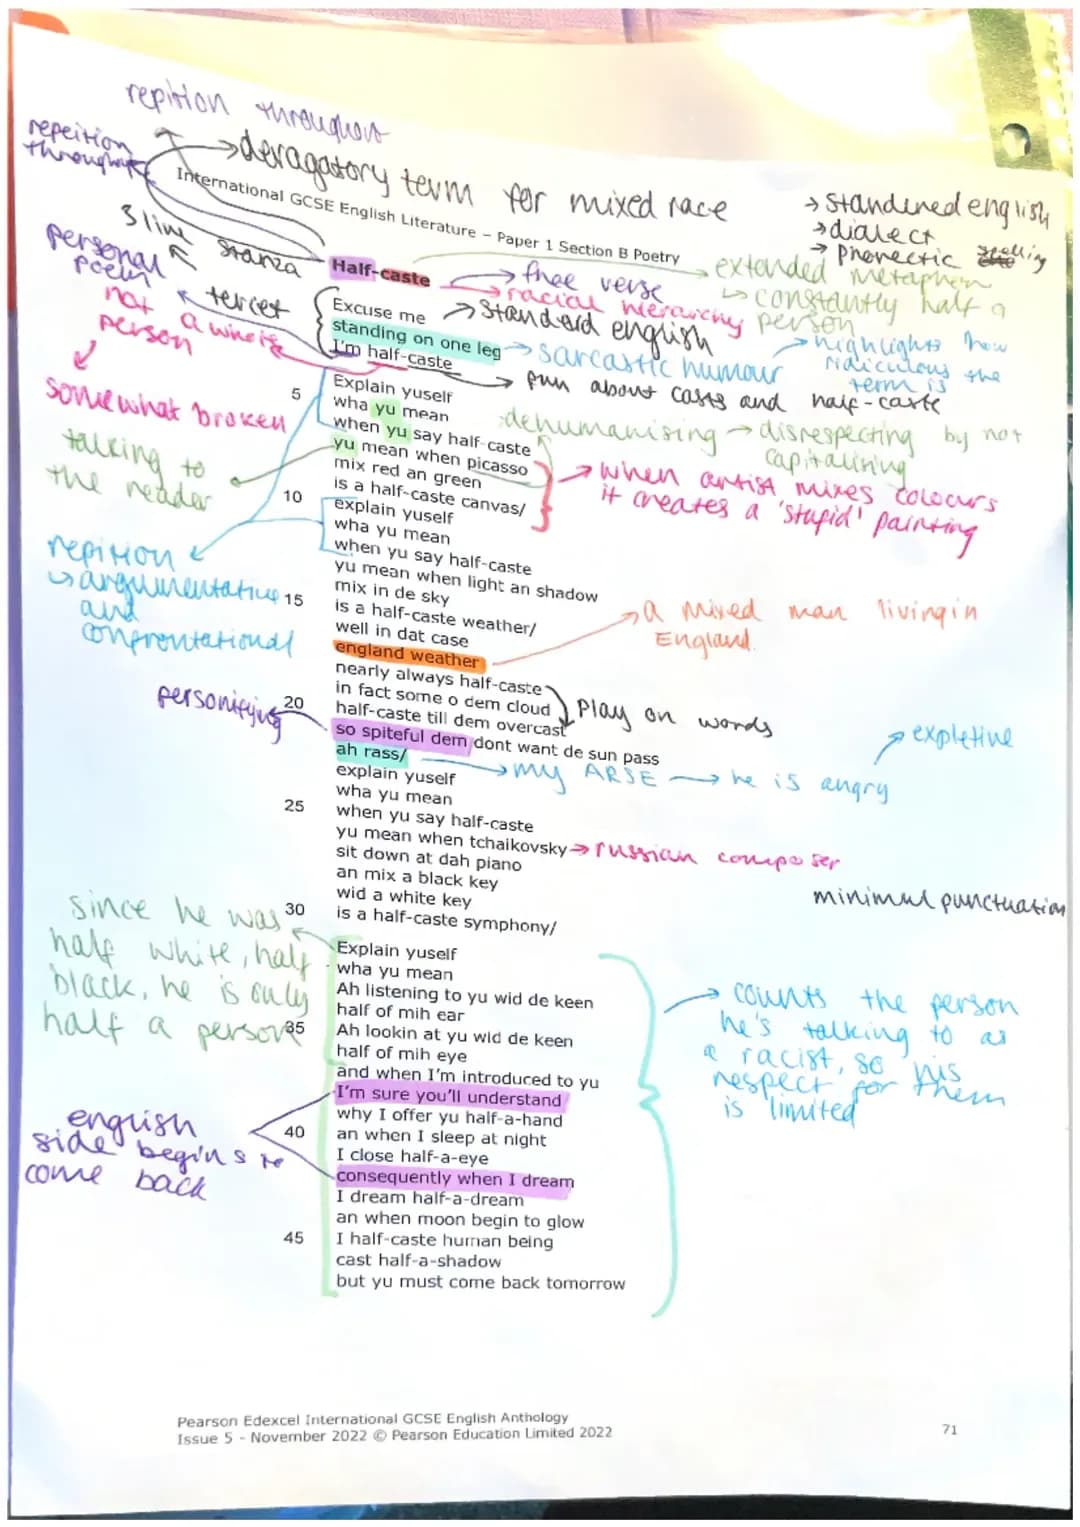 repition throughout
repeition
throughout
→deragatory term for mixed race
International GCSE English Literature – Paper 1 Section B Poetry
→ Standered english
→ dialect
→ Phonectic spelling
3 line stanza
tercet
personal
poem
Half-caste
→ free verse
→ racial hierarchy
extended metaphor
↳ constantly half a
person
not a whole
person
somewhat broken
Excuse me
→ Standard english
standing on one leg
→ sarcastic humour
→ highlights how
ridiculous the
term is
I'm half-caste
→ pun about casts and half-caste
5
Explain yuself
wha yu mean
when yu say half-caste
:dehumanising → disrespecting by not
capitalising
yu mean when picasso
mix red an green
is a half-caste canvas/
→ when artist mixes colours
it creates a 'stupid' painting
talking to
the reader
10
explain yuself
wha yu mean
when yu say half-caste
repition
↳ argumentative
and
confrontational
yu mean when light an shadow
mix in de sky
15
is a half-caste weather/
well in dat case
england weather
→ a mixed man living in
England.
nearly always half-caste
in fact some o dem cloud
20
half-caste till dem overcast
Play on words
personifying
so spiteful dem dont want de sun pass
ah rass/
→ my ARSE → he is angry
→ expletive
explain yuself
wha yu mean
25
when yu say half-caste
yu mean when tchaikovsky
→ russian composer
sit down at dah piano
an mix a black key
wid a white key
30
is a half-caste symphony/
minimul punctuation
since he was
half white, half
black, he is only
half a person
Explain yuself
wha yu mean
Ah listening to yu wid de keen
half of mih ear
35
Ah lookin at yu wid de keen
half of mih eye
and when I'm introduced to yu
I'm sure you'll understand
why I offer yu half-a-hand
→ counts the person
he's talking to as
a racist, so his
respect for them
is limited
english
side begins to
come back
40
an when I sleep at night
I close half-a-eye
consequently when I dream
I dream half-a-dream
an when moon begin to glow
45
I half-caste human being
cast half-a-shadow
but yu must come back tomorrow
Pearson Edexcel International GCSE English Anthology
Issue 5 - November 2022 © Pearson Education Limited 2022
71